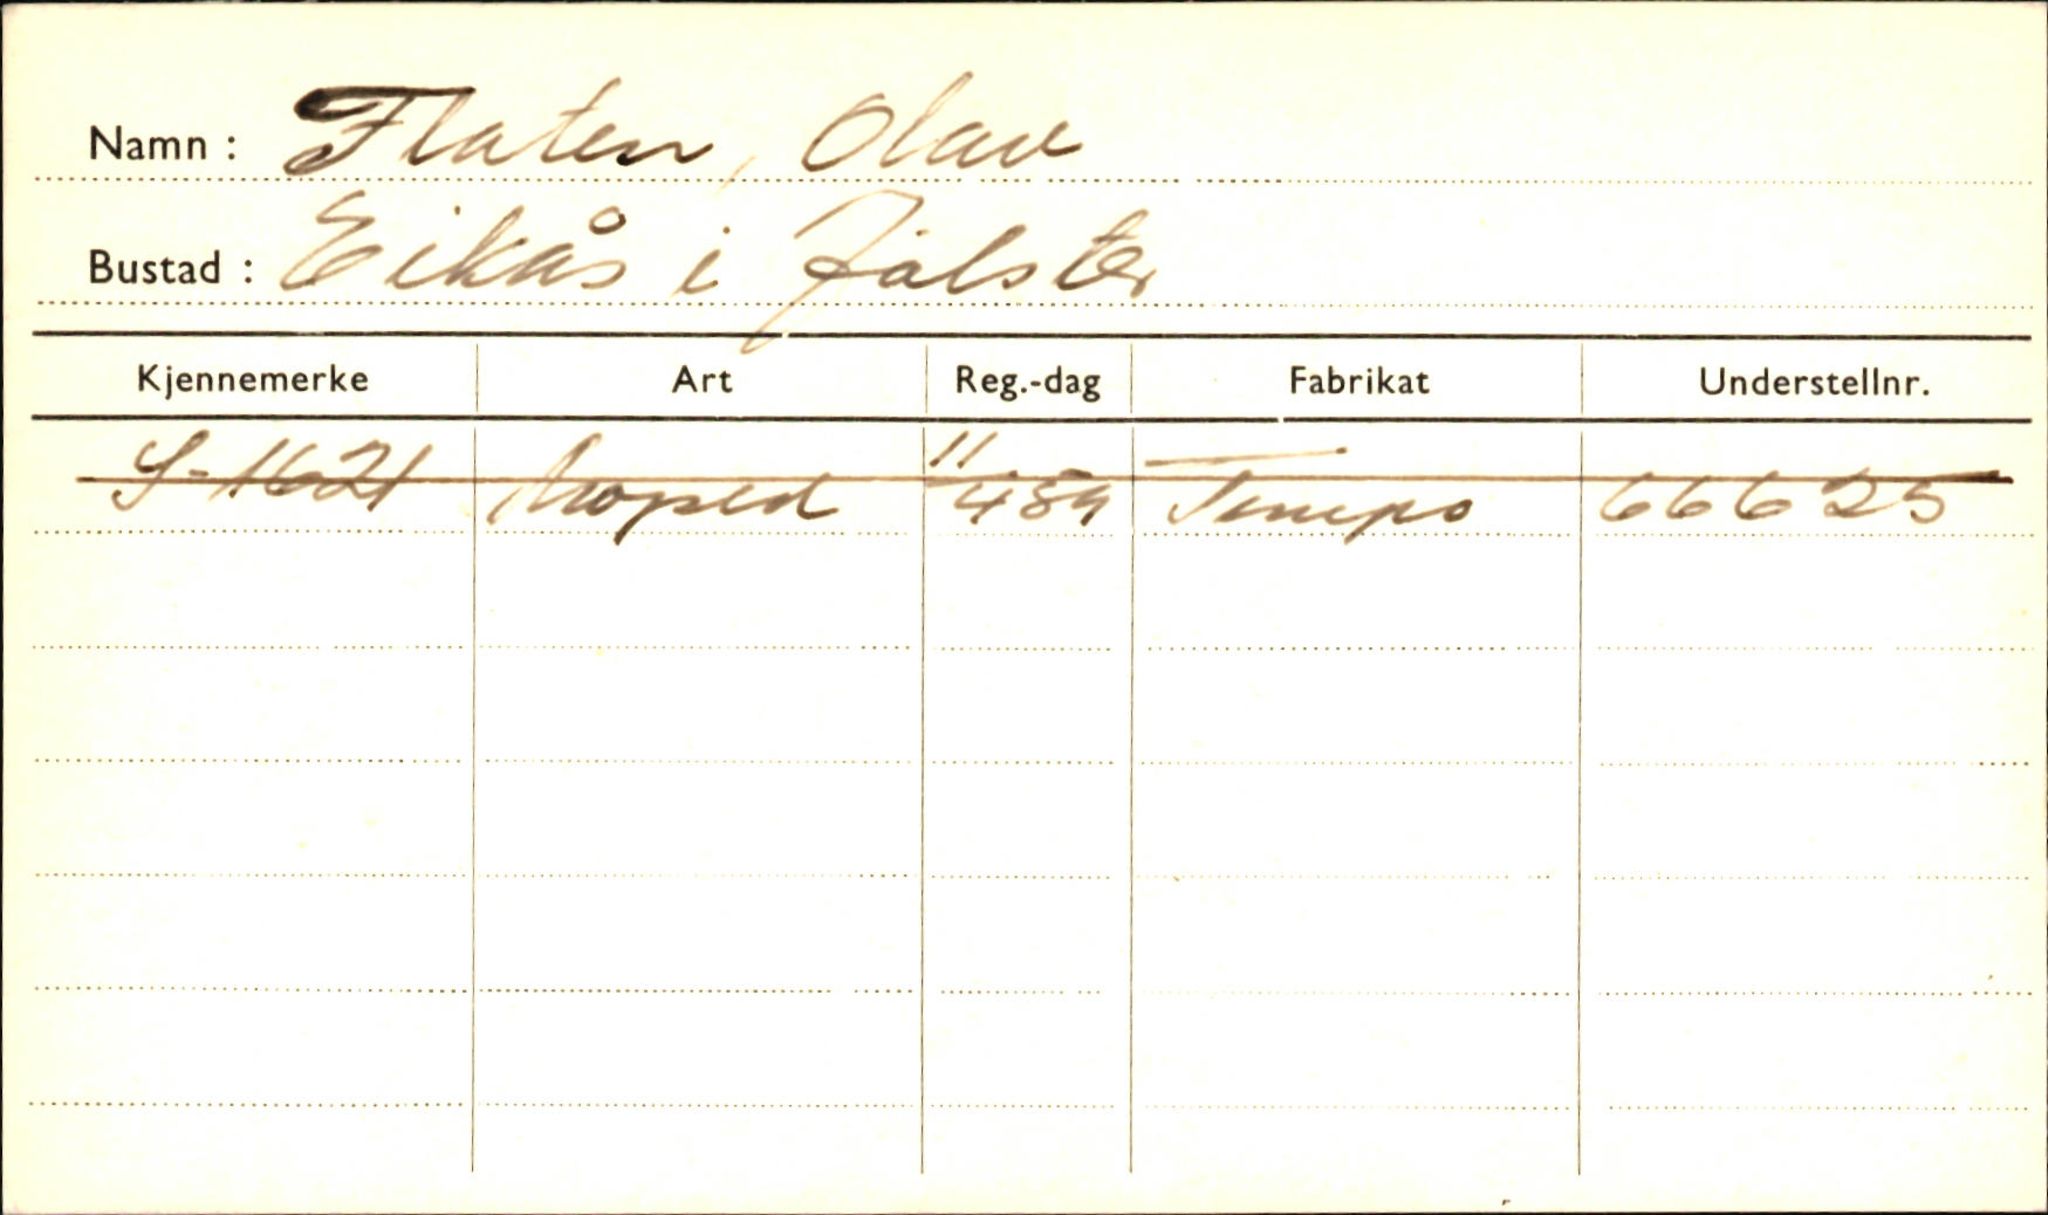 Namn : Flaten, Olav
Bustad : Eikås i Jølster
Kjennemerke Art Reg.-dag Fabrikat Understellnr.
S-1621 Moped 11/4 59 Tempo 66625